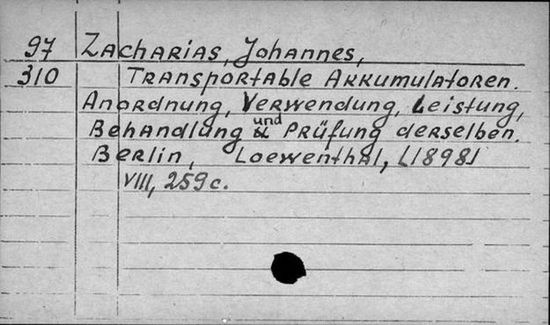 97 Zacharias, Johannes,
310 Transportable Akkumulatoren.
Anordnung, Verwendung, Leistung,
Behandlung und Prüfung derselben.
Berlin, Loewenthal, [1898]
VIII, 259 c.